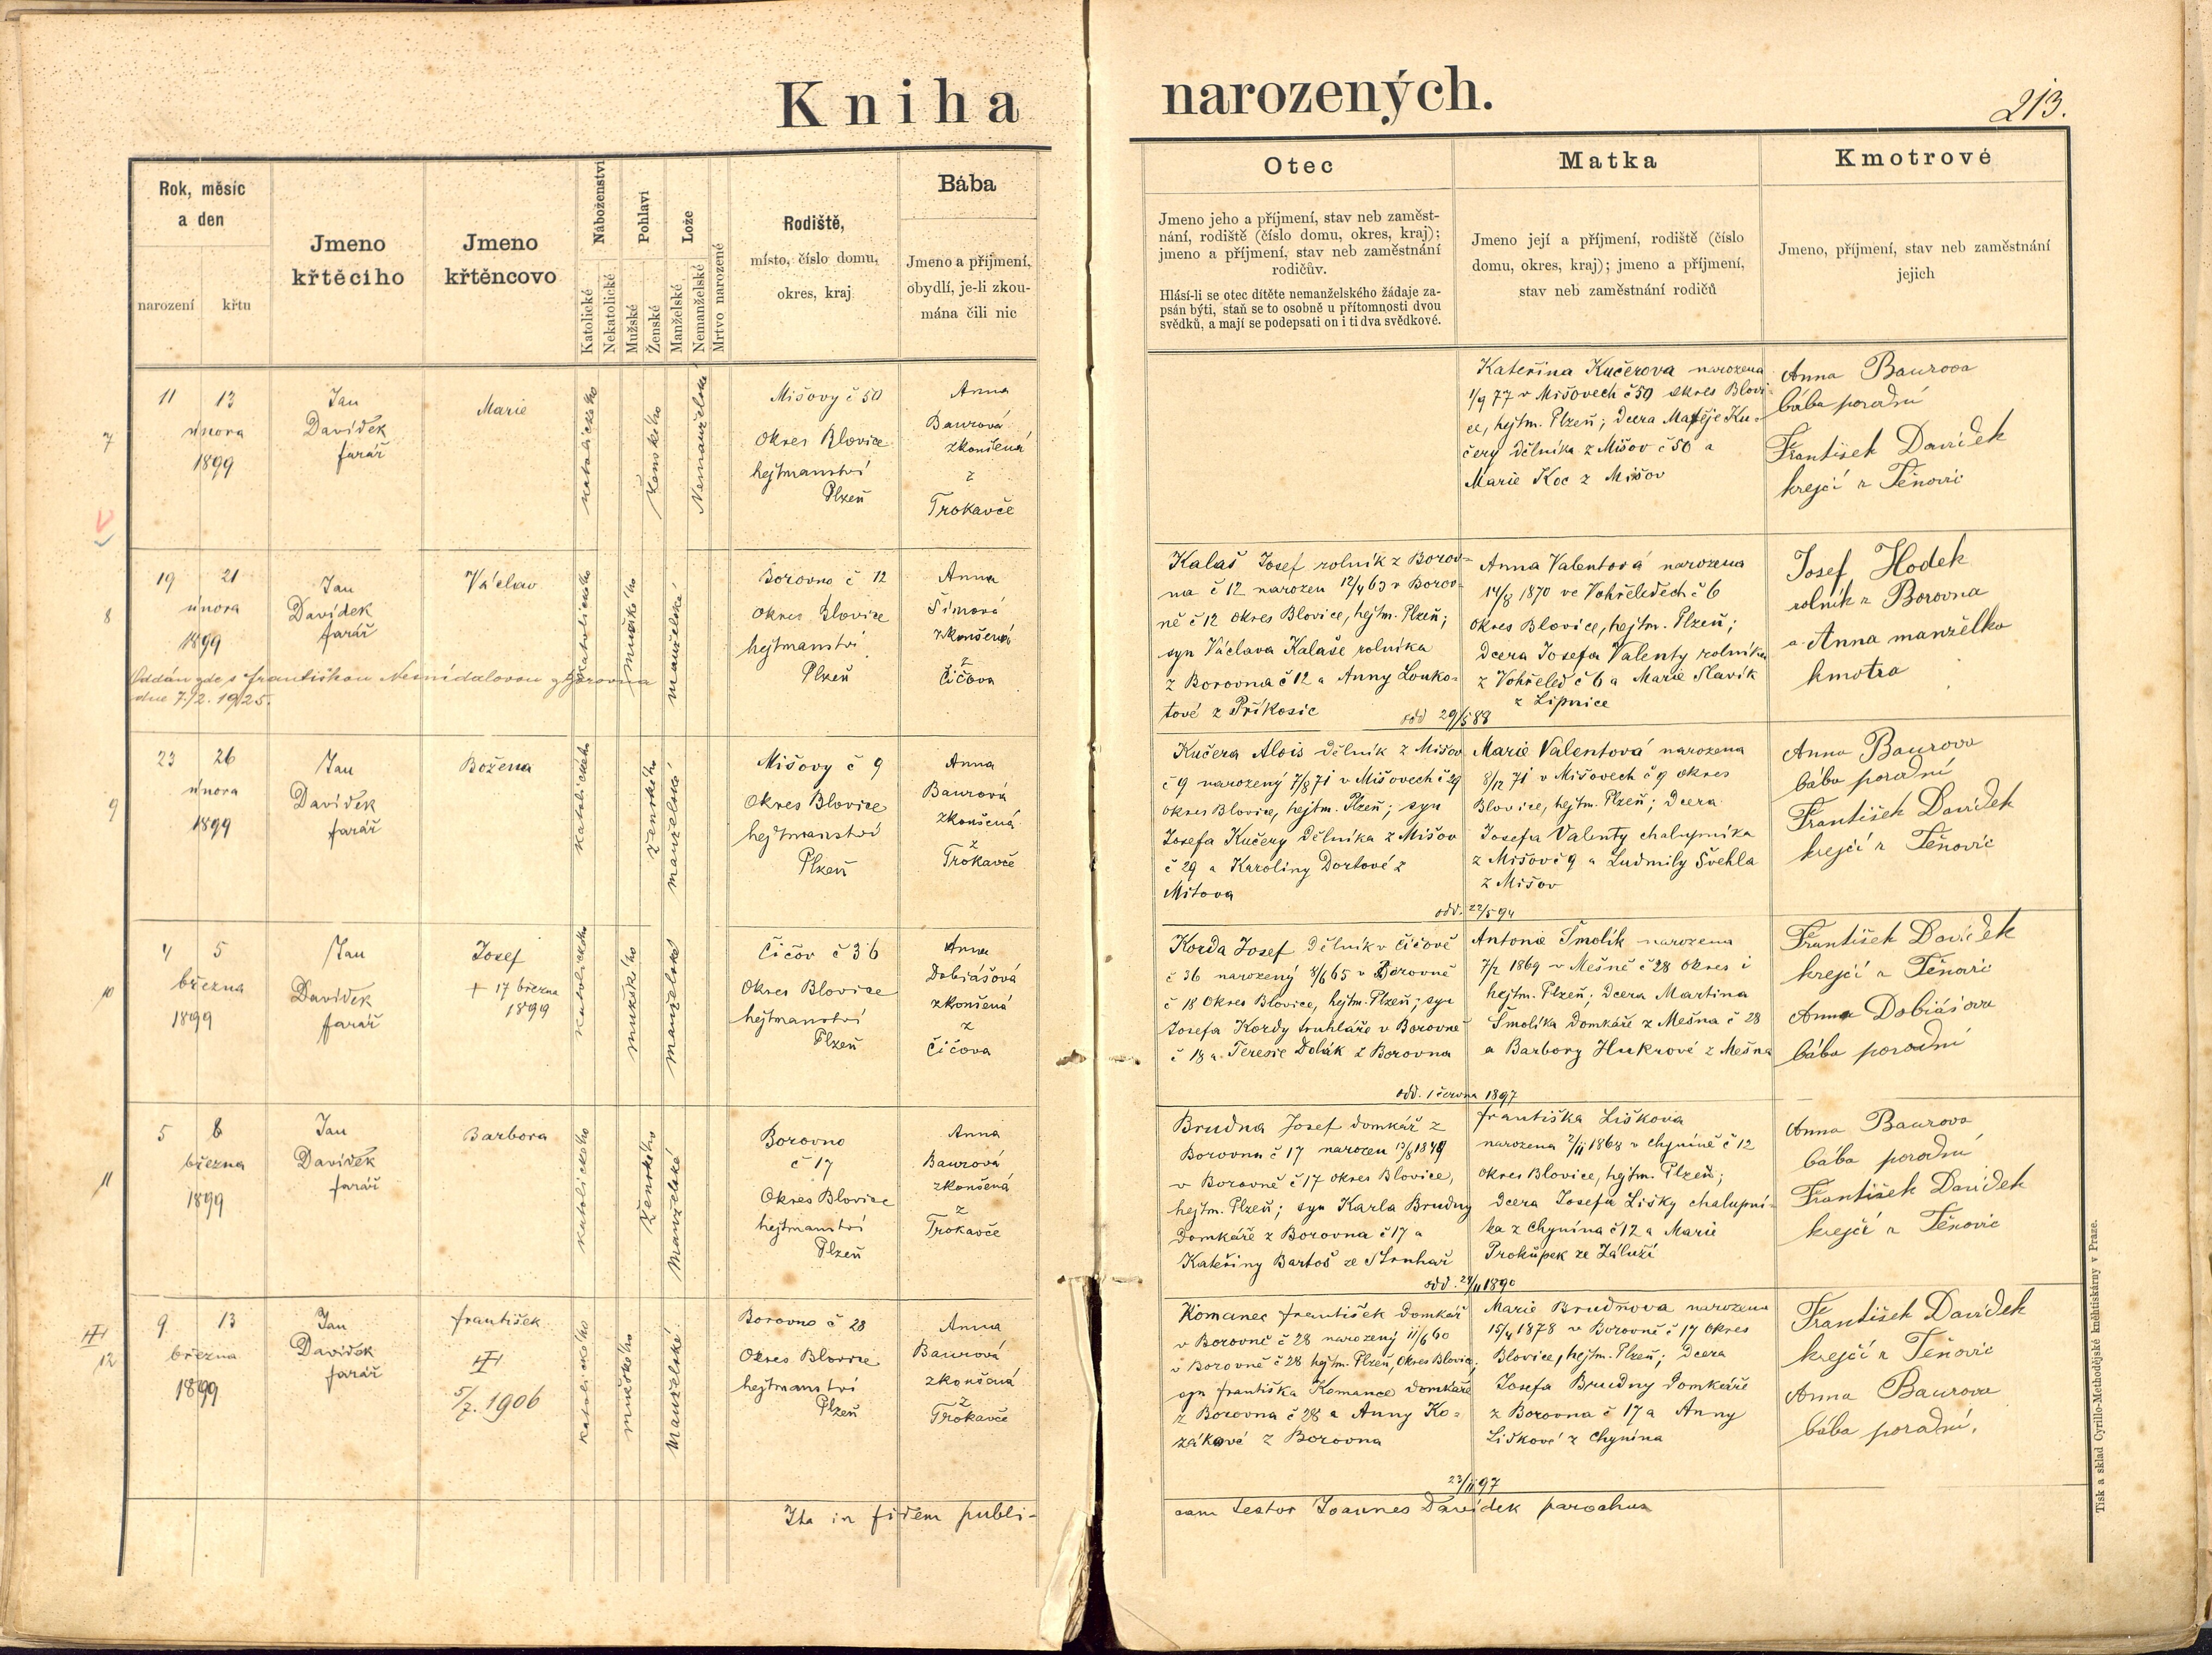 Kniha narozených.
213.
Rok, měsíc
a den
narození
křtu
Jmeno
křtěcího
Jmeno
křtěncovo
Náboženství
Katolické
Nekatolické
Pohlaví
Mužské
Ženské
Lože
Manželské
Nemanželské
Mrtvo narozené
Rodiště,
místo, číslo domu,
okres, kraj
Bába
Jmeno a příjmení,
obydlí, je-li zkou-
mána čili nic
Otec
Jmeno jeho a příjmení, stav neb zaměst-
nání, rodiště (číslo domu, okres, kraj);
jmeno a příjmení, stav neb zaměstnání
rodičův.
Hlásí-li se otec dítěte nemanželského žádaje za-
psán býti, staň se to osobně u přítomnosti dvou
svědků, a mají se podepsati on i ti dva svědkové.
Matka
Jmeno její a příjmení, rodiště (číslo
domu, okres, kraj); jmeno a příjmení,
stav neb zaměstnání rodičů
Kmotrové
Jmeno, příjmení, stav neb zaměstnání
jejich
7
11 13
února
1899
Jan
Davídek
farář
Marie
katolického
ženského
Nemanželské
Mišovy č 50
Okres Blovice
hejtmanství
Plzeň
Anna
Baurová
zkoušená
z
Trokavče
Kateřina Kučerova narozena
1/9 77 v Mišovech č 50 okres Blovi-
ce, hejtm. Plzeň; dcera Matěje Ku-
čery dělníka z Mišov č 50 a
Marie Koc z Mišov
Anna Baurova
bába porodní
František Davídek
krejčí z Těnovic
8
19 21
února
1899
Jan
Davídek
farář
Václav
katolického
mužského
manželské
Borovno č 12
Okres Blovice
hejtmanství
Plzeň
Anna
Šimová
zkoušená
z
Čičova
Oddán zde s Františkou Nesnídalovou z Borovna
dne 7./2. 1925.
Kalaš Josef rolník z Borov-
na č 12 narozen 12/4 63 v Borov-
ně č 12 okres Blovice, hejtm. Plzeň;
syn Václava Kalaše rolníka
z Borovna č 12 a Anny Louko-
tové z Příkosic
Anna Valentová narozena
14/8 1870 ve Vohřeledech č 6
okres Blovice, hejtm. Plzeň;
dcera Josefa Valenty rolníka
z Vohřeled č 6 a Marie Slavík
z Lipnice
odd 29/5 88
Josef Hodek
rolník z Borovna
a Anna manželka
kmotra
9
23 26
února
1899
Jan
Davídek
farář
Božena
katolického
ženského
manželské
Mišovy č 9
Okres Blovice
hejtmanství
Plzeň
Anna
Baurová
zkoušená
z
Trokavče
Kučera Alois dělník z Mišov
č 9 narozený 7/8 71 v Mišovech č 29
okres Blovice, hejtm. Plzeň; syn
Josefa Kučery dělníka z Mišov
č 29 a Karoliny Dortové z
Mítova
Marie Valentová narozena
8/12 71 v Mišovech č 9 okres
Blovice, hejtm. Plzeň; dcera
Josefa Valenty chalupníka
z Mišov č 9 a Ludmily Švehla
z Mišov
odd. 22/5 94
Anna Baurova
bába porodní
František Davídek
krejčí z Těnovic
10
4 5
března
1899
Jan
Davídek
farář
Josef
+ 17 března
1899
katolického
mužského
manželské
Čičov č 36
Okres Blovice
hejtmanství
Plzeň
Anna
Dobiášová
zkoušená
z
Čičova
Korda Josef dělník v Čičově
č 36 narozený 8/6 65 v Borovně
č 18 Okres Blovice, hejtm. Plzeň; syn
Josefa Kordy truhláře v Borovně
č 18 a Teresie Dolák z Borovna
Antonie Smolík narozena
7/2 1869 v Mešně č 28 okres i
hejtm. Plzeň; dcera Martina
Smolíka domkáře z Mešna č 28
a Barbory Hukrové z Mešna
odd. 1 června 1897
František Davídek
krejčí z Těnovic
Anna Dobiášova
bába porodní
11
5 8
března
1899
Jan
Davídek
farář
Barbora
katolického
ženského
Manželské
Borovno
č 17
Okres Blovice
hejtmanství
Plzeň
Anna
Baurová
zkoušená
z
Trokavče
Brudna Josef domkář z
Borovna č 17 narozen 13/8 1849
v Borovně č 17 okres Blovice,
hejtm. Plzeň; syn Karla Brudny
domkáře z Borovna č 17 a
Kateřiny Bartoš ze Struhař
Františka Liškova
narozena 2/11 1868 v Chynině č 12
okres Blovice, hejtm. Plzeň;
dcera Josefa Lišky chalupní-
ka z Chynína č 12 a Marie
Prokůpek ze Záluží
odd. 24/11 1890
Anna Baurova
bába porodní
František Davídek
krejčí z Těnovic
12
9 13
března
1899
Jan
Davídek
farář
František
5/7. 1906
katolického
mužského
Manželské
Borovno č 28
Okres Blovice
hejtmanství
Plzeň
Anna
Baurová
zkoušená
z
Trokavče
Komanec František domkář
v Borovně č 28 narozený 11/6 60
v Borovně č 28 hejtm. Plzeň, Okres Blovice;
syn Františka Komance domkáře
z Borovna č 28 a Anny Ko-
zákové z Borovna
Marie Brudnova narozena
15/4 1878 v Borovně č 17 okres
Blovice, hejtm. Plzeň; dcera
Josefa Brudny domkáře
z Borovna č 17 a Anny
Liškové z Chynína
23/11 97
František Davídek
krejčí z Těnovic
Anna Baurova
bába porodní.
Ita in fidem publi-
cam testor Joannes Davídek parochus
Tisk a sklad Cyrillo-Methodějské kněhtiskárny v Praze.